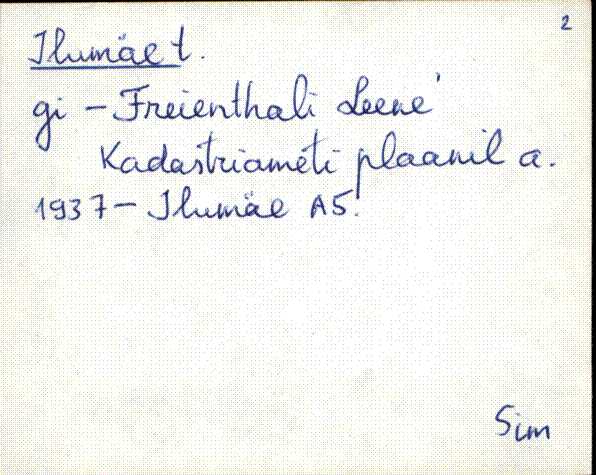 2
Ilumäe t.
gi - Freienthali Leene'
Kadastriameti plaanil a.
1937 - Ilumäe A5.
Sim